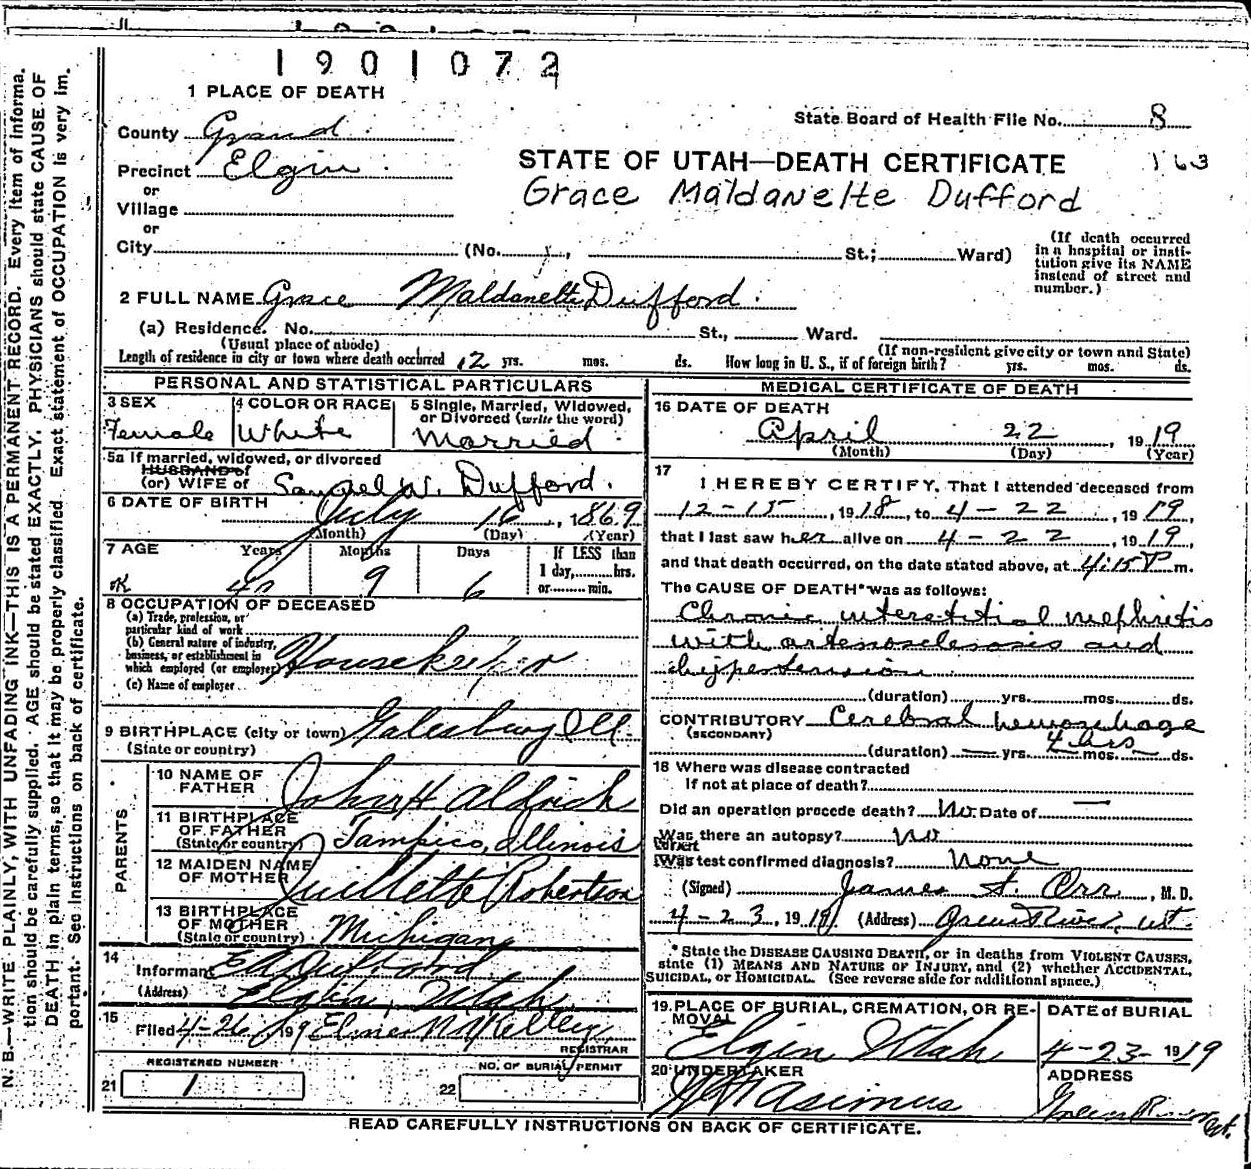 1901072
1 PLACE OF DEATH
State Board of Health File No. 8
County Grand
163
STATE OF UTAH—DEATH CERTIFICATE
Precinct Elgin
Grace Maldanelte Dufford
or
Village
or
City (No. St.; Ward)
(If death occurred in a hospital or insti-tution give its NAME instead of street and number.)
2 FULL NAME Grace Maldanette Dufford.
(a) Residence. No. St., Ward.
(Usual place of abode) (If non-resident give city or town and State)
Length of residence in city or town where death occurred 12 yrs. mos. ds. How long in U. S., if of foreign birth? yrs. mos. ds.
PERSONAL AND STATISTICAL PARTICULARS
3 SEX 4 COLOR OR RACE 5 Single, Married, Widowed,
or Divorced (write the word)
Female White Married
5a If married, widowed, or divorced
HUSBAND of
(or) WIFE of Samuel W. Dufford.
6 DATE OF BIRTH
July 16, 1869
(Month) (Day) (Year)
7 AGE Years Months Days If LESS than
1 day, hrs.
or min.
9 6
8 OCCUPATION OF DECEASED
(a) Trade, profession, or
particular kind of work
(b) General nature of industry,
business, or establishment in
which employed (or employer) Housekeeper
(c) Name of employer
9 BIRTHPLACE (city or town) Galesburg Ill.
(State or country)
PARENTS
10 NAME OF
FATHER John H Aldrich
11 BIRTHPLACE
OF FATHER
(State or country) Tampico, Illinois
12 MAIDEN NAME
OF MOTHER Juillette Robertson
13 BIRTHPLACE
OF MOTHER
(State or country) Michigan
14
Informant Dufford
(Address) Elgin, Utah
15
Filed 4-26 1919 Elmer
REGISTRAR
REGISTERED NUMBER NO. OF BURIAL PERMIT
21 1 22
MEDICAL CERTIFICATE OF DEATH
16 DATE OF DEATH
April 22, 1919
(Month) (Day) (Year)
17
I HEREBY CERTIFY, That I attended deceased from
12-15, 1918, to 4-22, 1919,
that I last saw her alive on 4-22, 1919,
and that death occurred, on the date stated above, at 4:15 P m.
The CAUSE OF DEATH* was as follows:
Chronic interstitial nephritis
with arteriosclerosis and
hypertension
(duration) yrs. mos. ds.
CONTRIBUTORY Cerebral hemorrhage
(SECONDARY)
4 hrs
(duration) — yrs. — mos. — ds.
18 Where was disease contracted
If not at place of death?
Did an operation precede death? No. Date of —
Was there an autopsy? No
What test confirmed diagnosis? None
(Signed) James Orr, M. D.
4-23, 1919 (Address) Green River, Ut.
*State the DISEASE CAUSING DEATH, or in deaths from VIOLENT CAUSES,
state (1) MEANS AND NATURE OF INJURY, and (2) whether ACCIDENTAL,
SUICIDAL, or HOMICIDAL. (See reverse side for additional space.)
19 PLACE OF BURIAL, CREMATION, OR RE-MOVAL DATE of BURIAL
Elgin Utah 4-23- 1919
20 UNDERTAKER ADDRESS
Asimus Green River Ut.
READ CAREFULLY INSTRUCTIONS ON BACK OF CERTIFICATE.
N. B.—WRITE PLAINLY, WITH UNFADING INK—THIS IS A PERMANENT RECORD. Every item of informa-
tion should be carefully supplied. AGE should be stated EXACTLY. PHYSICIANS should state CAUSE OF
DEATH in plain terms, so that it may be properly classified. Exact statement of OCCUPATION is very im-
portant. See instructions on back of certificate.